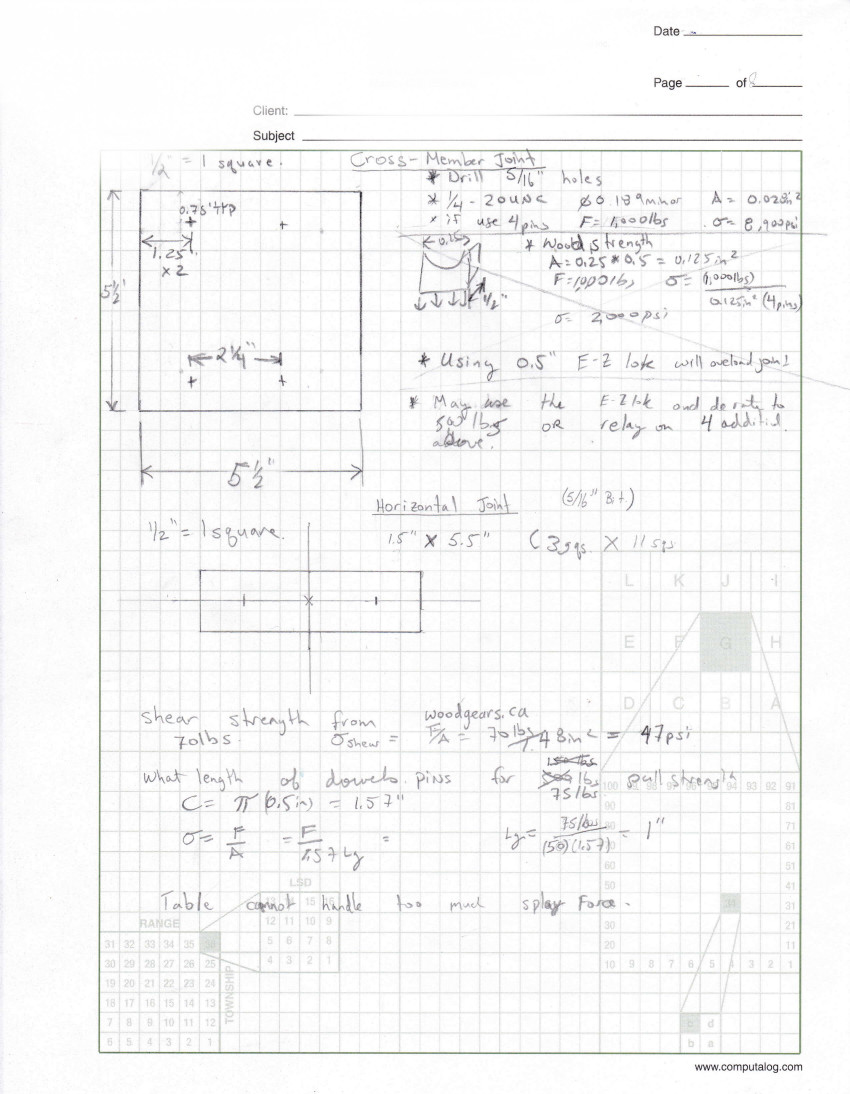 Date
Page of
Client:
Subject
1/2" = 1 square.
Cross-Member Joint
* Drill 5/16" holes
* 1/4 - 20UNC ⌀0.189minor A = 0.028in²
* if use 4pins F=1,000lbs σ= 8,900psi
0.75" typ
1.25"
x2
5½"
2¼"
5½"
0.25"
1/2"
* Wood strength
A=0.25*0.5 = 0.125in²
F=1,000lbs σ= (1,000lbs)
0.125in² (4pins)
σ= 2,000psi
* Using 0.5" E-Z lok will overload joint
* May use the E-Z lok and derate to
500 lbs OR relay on 4
above.
Horizontal Joint (5/16" Bit.)
1/2" = 1 square. 1.5" X 5.5" (3 sqs. X 11 sqs
Shear strength from woodgears.ca
70lbs. σshear = F/A = 70lbs/48in² = 47psi
What length of dowels pins for lbs pull strength
75lbs
C = π(0.5in) = 1.57"
σ = F/A = F/1.57 Lg =
Lg = 75lbs/(50)(1.57) = 1"
Table cannot handle too much splay Force.
L K J I
E F G H
D C B A
100 99 98 97 96 95 94 93 92 91
90 81
80 71
70 61
60 51
50 41
40 31
30 21
20 11
10 9 8 7 6 5 4 3 2 1
LSD
13 14 15 16
12 11 10 9
5 6 7 8
4 3 2 1
RANGE
TOWNSHIP
31 32 33 34 35 36
30 29 28 27 26 25
19 20 21 22 23 24
18 17 16 15 14 13
7 8 9 10 11 12
6 5 4 3 2 1
c d
b a
www.computalog.com